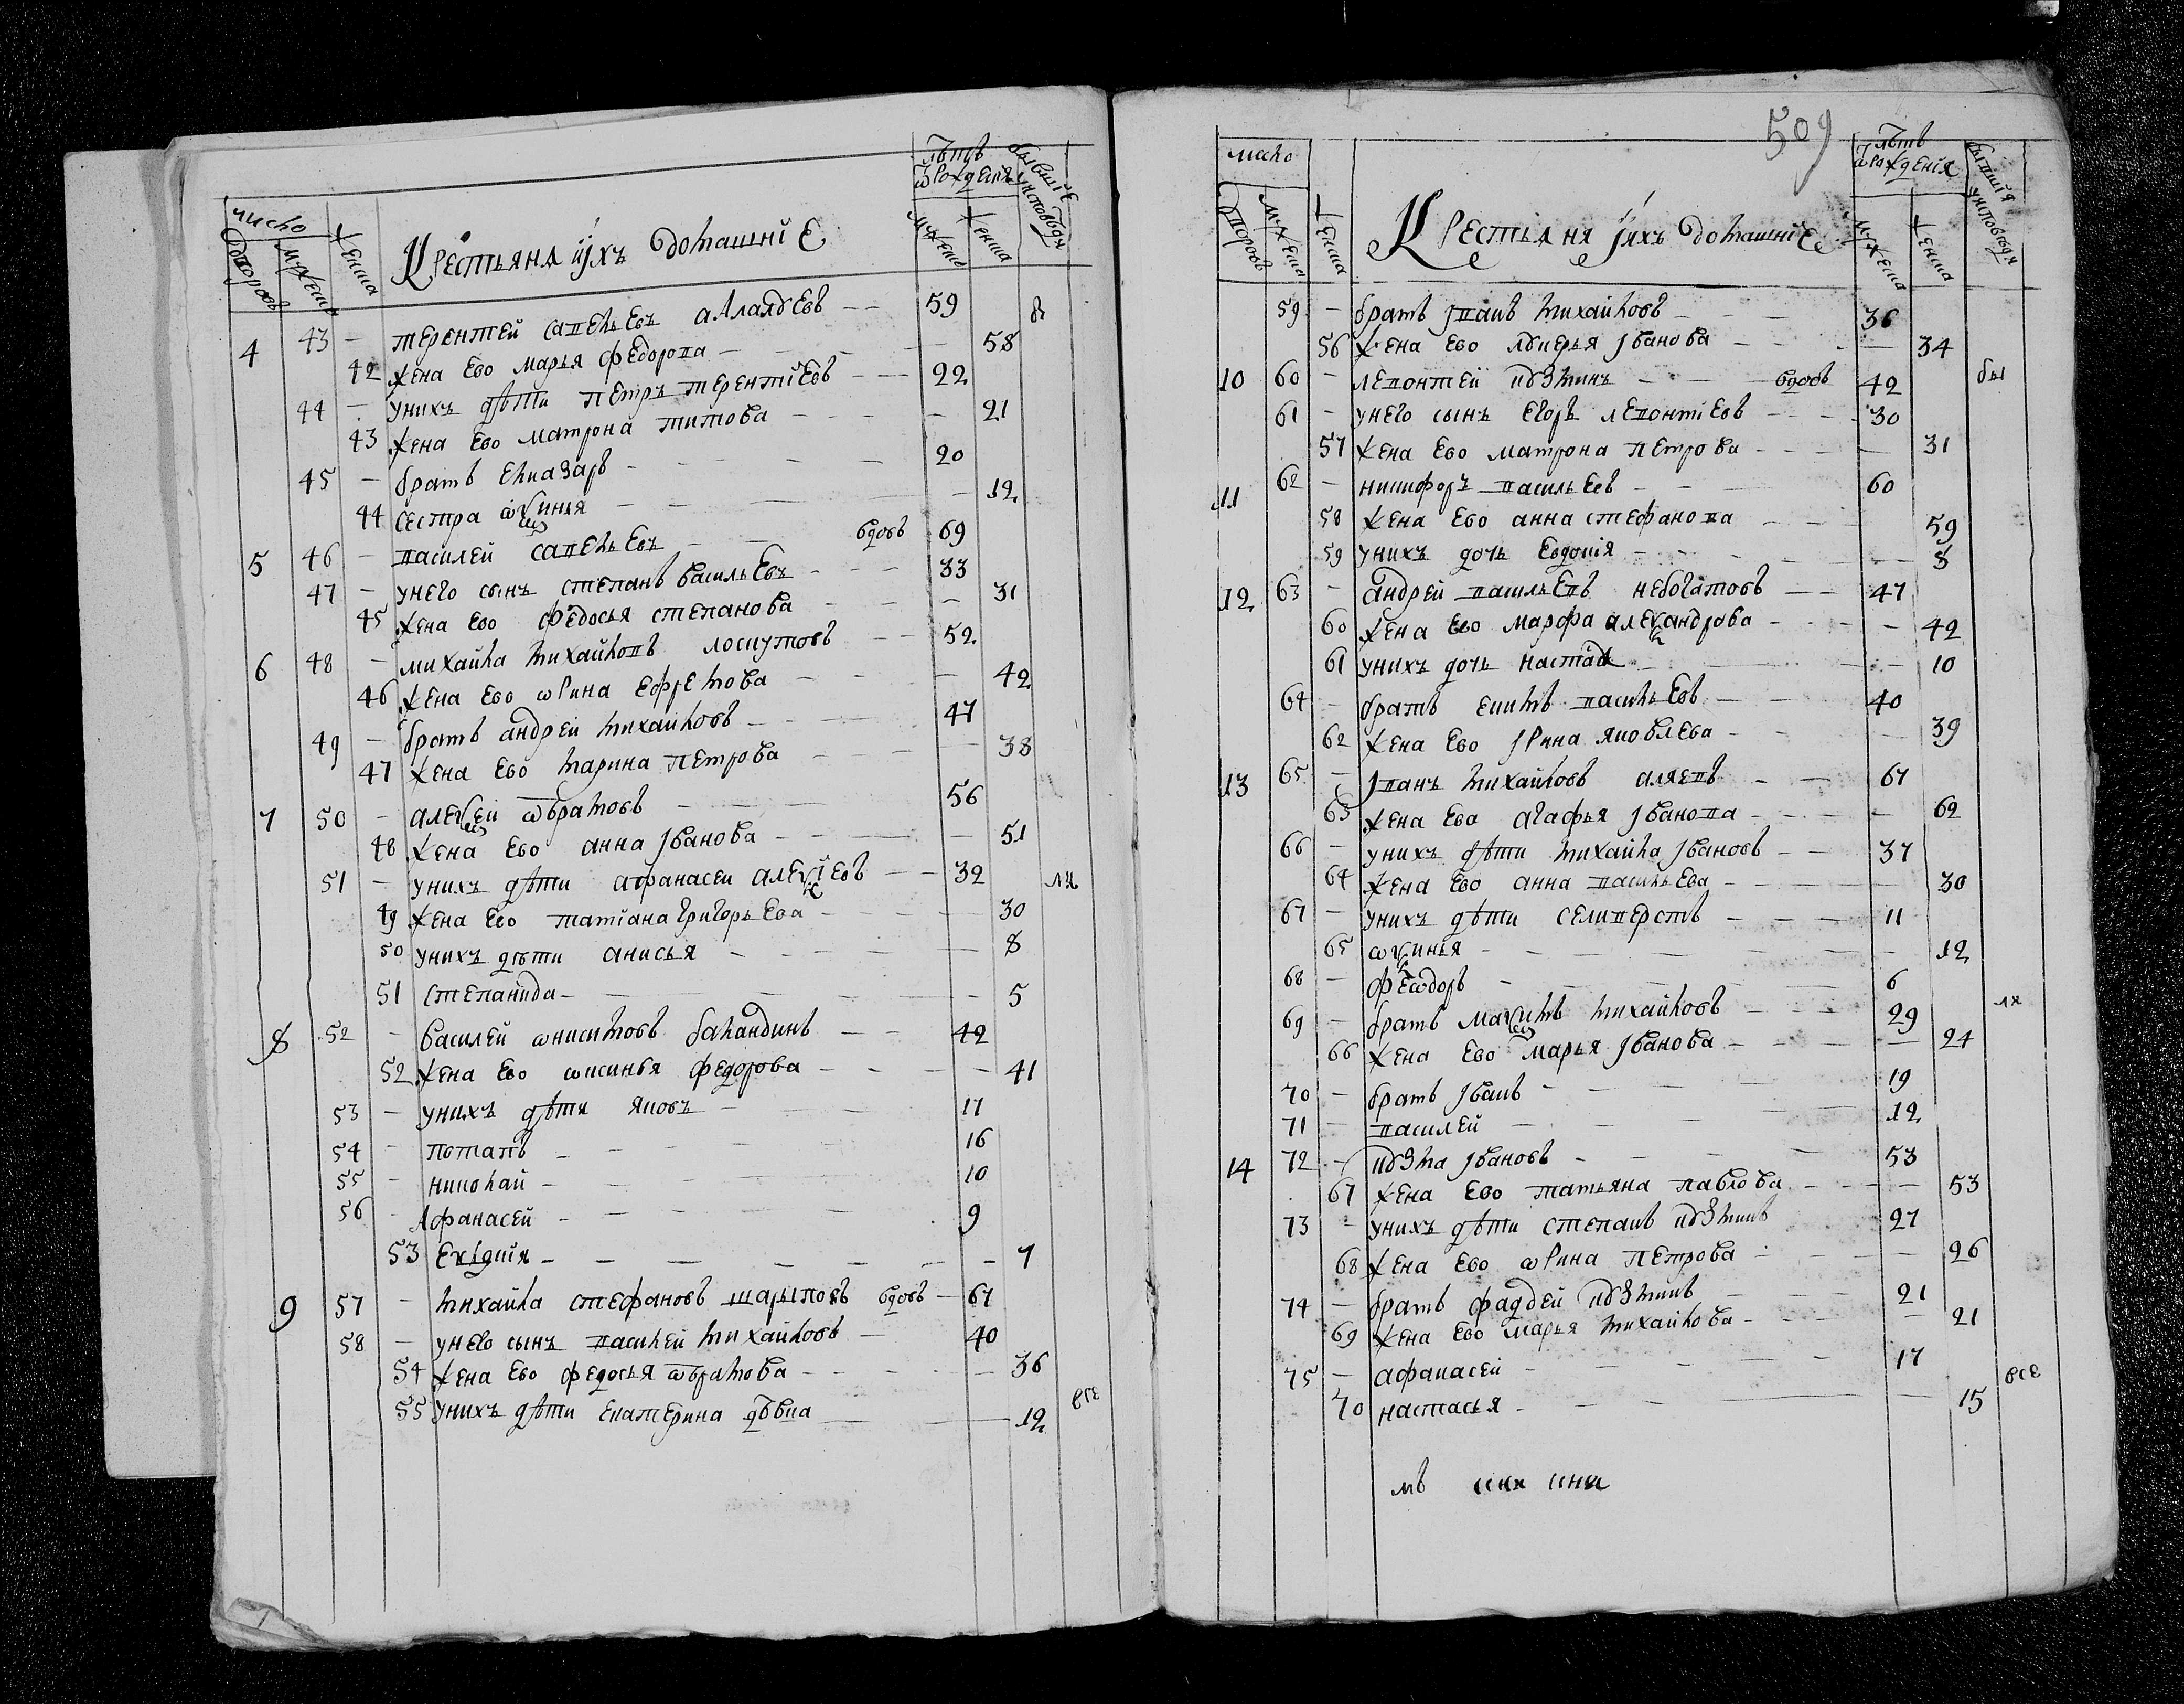 число
лѣтъ ѿ рожденія
бывшіе у исповѣди
дворовъ
мужеска
женска
Крестьяня и ихъ домашніе
мужеска
женска
4 43 – терентей савельевъ алалдєвъ – 59
42 жена ево марья федорова – 58
44 – унихъ дѣти петръ терентіевъ – 22
43 жена ево матрона титова – 21
45 – братъ елиазаръ – 20
44 сестра ѡксинья – 12
5 46 – василей савельевъ – вдовъ 69
47 – унего сынъ степанъ васильевъ – 33
45 жена ево федосья степанова – 31
6 48 – михайла михайловъ лоскутовъ – 52
46 жена ево ѡрина ефремова – 42
49 – братъ андрей михайловъ – 47
47 жена ево марина петрова – 38
7 50 – алексей абрамовъ – 56
48 жена ево анна іванова – 51
51 – унихъ дѣти афанасеи алексіевъ – 32 ли
49 жена ево татіана григорьева – 30
50 унихъ дѣти анисья – 8
51 степанида – 5
8 52 – василей ѡнисимовъ баландинъ – 42
52 жена ево ѡксинья федорова – 41
53 – унихъ дѣти яковъ – 17
54 – потапъ – 16
55 – николай – 10
56 – афанасей – 9
53 – 7
9 57 – михайла стефановъ шарыповъ вдовъ – 67
58 – унего сынъ василей михайловъ – 40
54 жена ево федосья абрамова – 36
55 унихъ дѣти екатерина дѣвка – 12 все
509
число
лѣтъ ѿ рожденія
бывшія у исповѣди
дворовъ
мужеска
женска
Крестьяня ихъ домашніе
мужеска
женска
59 – братъ іванъ михайловъ – 36
56 жена ево лукерья іванова – 34
10 60 – левонтей кузминъ – вдовъ 42 бы
61 – унего сынъ егоръ левонтіевъ – 30
57 жена ево матрона петрова – 31
11 62 – никифоръ васильевъ – 60
58 жена ево анна стефанова – 59
59 унихъ дочь евдокія – 8
12 63 – андрей васильевъ небогатовъ – 47
60 жена ево марфа александрова – 42
61 унихъ дочь настася – 10
64 – братъ екимъ васильевъ – 40
62 жена ево ірина яковлева – 39
13 65 – іванъ михайловъ аляевъ – 67
63 жена ева агафья іванова – 62
66 – унихъ дѣти михайла івановъ – 37
64 жена ево анна васильева – 30
67 – унихъ дѣти селиверстъ – 11
65 ѡксинья – 12
68 – феѡдоръ – 6
69 – братъ максимъ михайловъ – 29 ля
66 жена ево марья іванова – 24
70 – братъ іванъ – 19
71 – василей – 12
14 72 – кузма івановъ – 53
67 жена ево татьяна павлова – 53
73 – унихъ дѣти степанъ кузминъ 27
68 жена ево ѡрина петрова – 26
74 – братъ фаддей кузминъ – 21
69 жена ево марья михайлова – 21
75 – афанасей – 17 все
70 настасья – 15